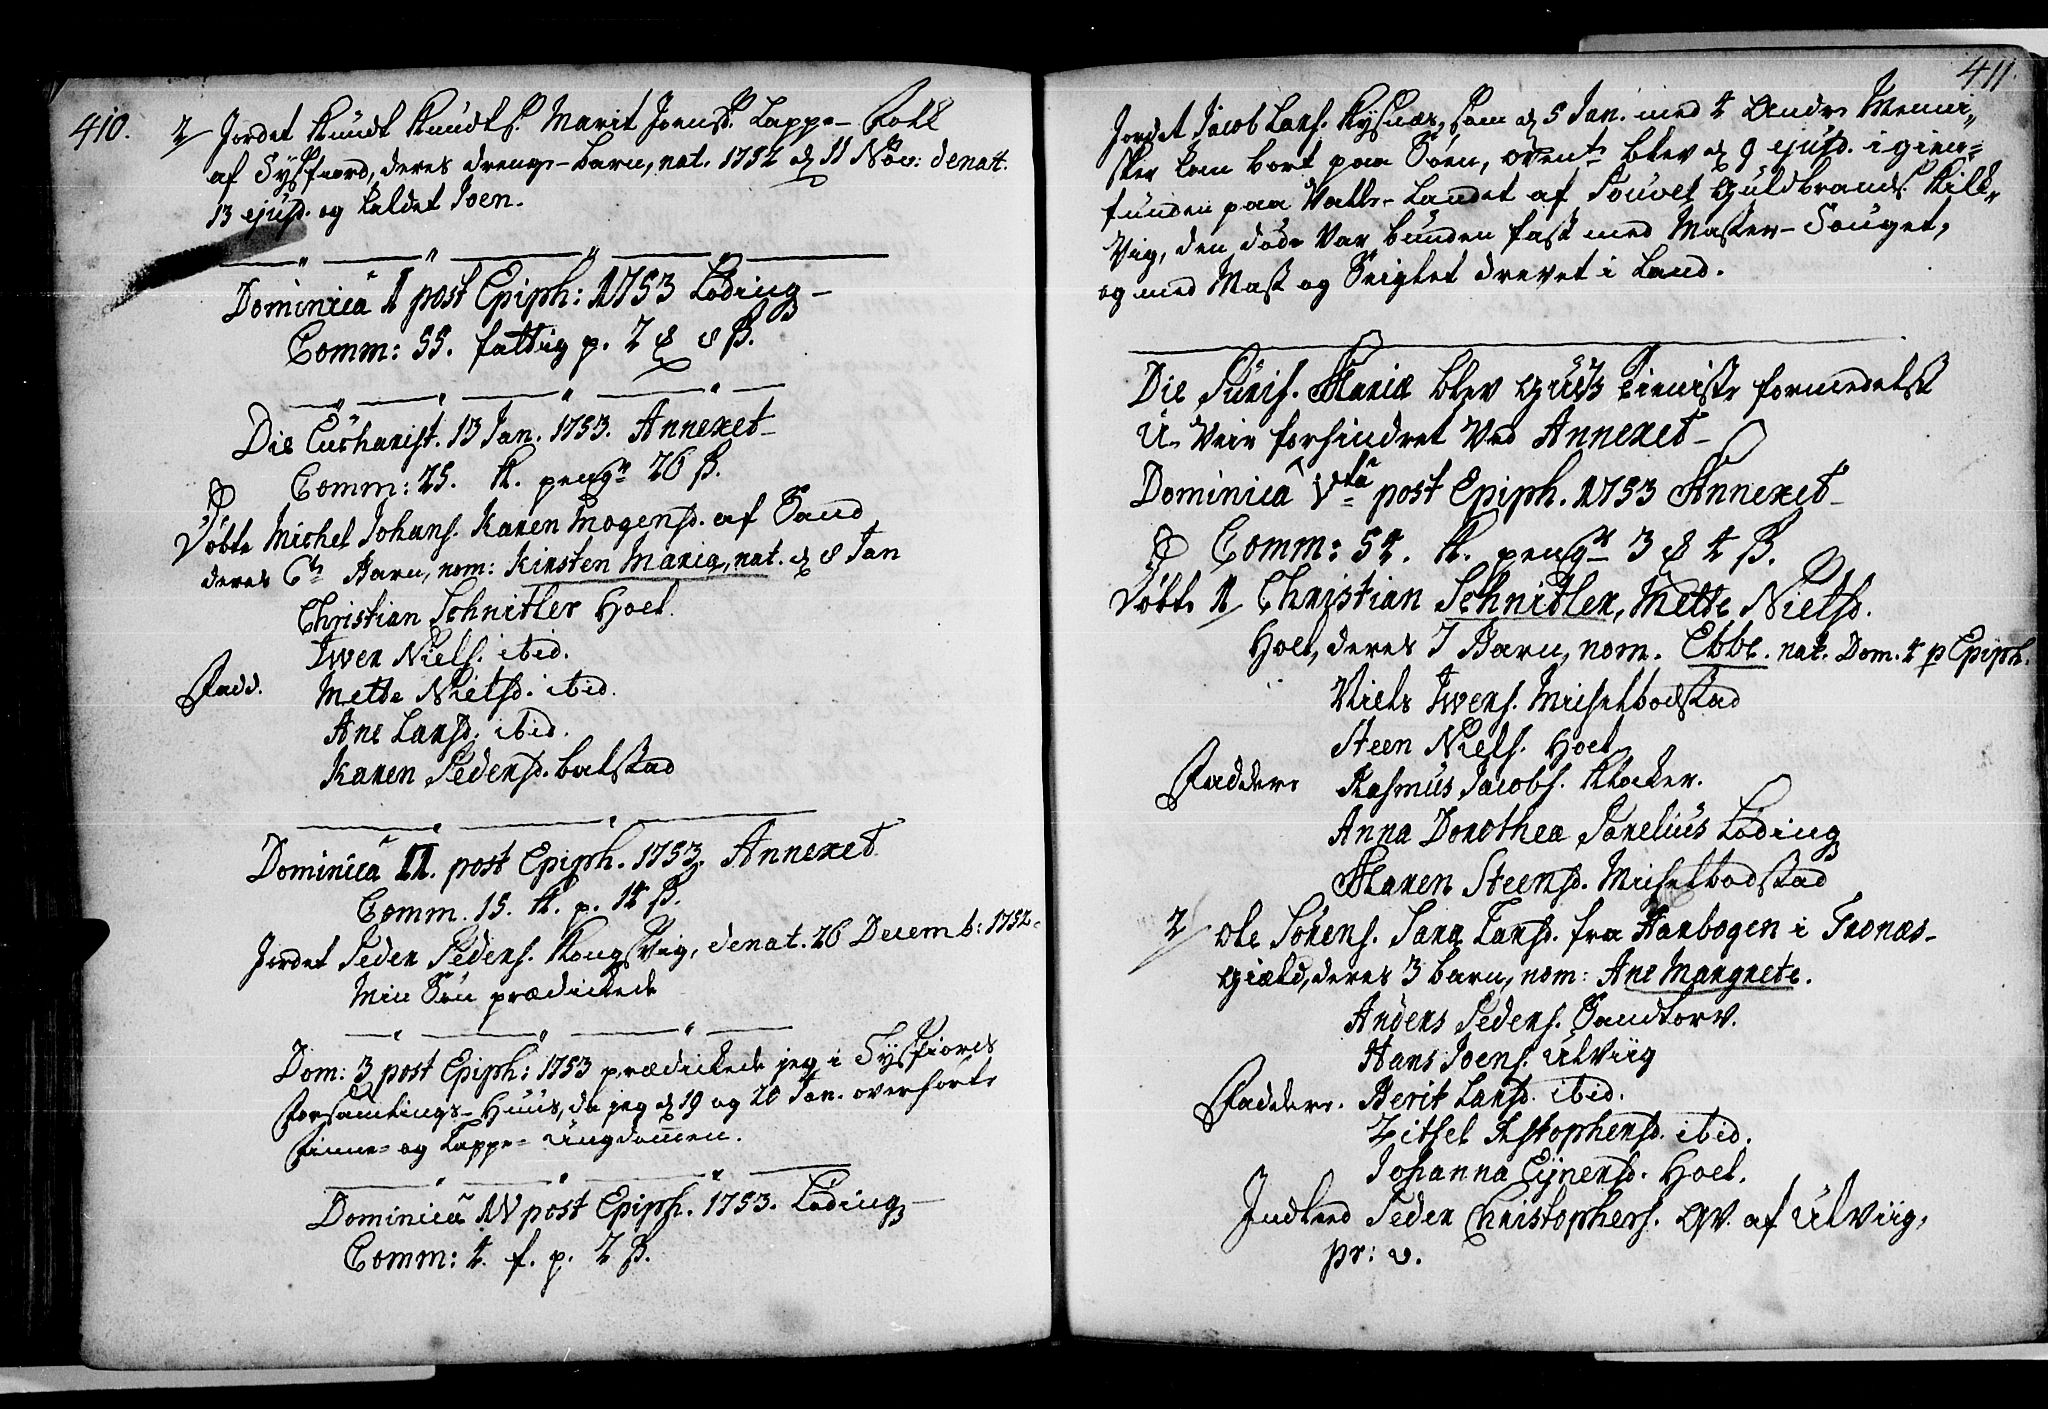 410.
2/ Jordet Knudt Knudts. Marit Joensd. Lappe-Folk
af Tysfiord, deres drenge-barn, nat. 1752 d 11 Nov: denat.
13 ejusd. og kaldet Joen.
Dominica 1 post Epiph: 1753 Löding
Comm: 55. fattig p. 2 # 8 ß.
Die Eucharist. 13 Jan. 1753. Annexet
Comm: 25. K. penge 26 ß.
Döbte Michel Johans. Karen Mogensd. af Sand
deres 6te Barn, nom: Kirsten Maria, nat. d 8 Jan
Christian Schnitler Hoel.
Iwer Niels. ibid.
Fadd. Mette Nielsd. ibid.
Ane Larsd. ibid.
Karen Pedersd. balstad
Dominica II. post Epiph. 1753. Annexet
Comm. 15. K. p. 14 ß.
Jordet Peder Peders. Kongsvig, denat. 26 Decemb: 1752.
Min Sön prædickede
Dom: 3 post Epiph: 1753 prædickede jeg i Tysfiords
Forsamlings-Huus, da jeg d 19 og 20 Jan. overhörte
Finne- og Lappe-Ungdommen.
Dominica IV post Epiph. 1753. Löding
Comm: 4. f. p. 2 ß.
411.
Jordet Jacob Lars. Rysnæs, som d 5 Jan. med 4 andre Menni-
sker kom bort paa Söen, blev d 9 ejusd. igien-
funden paa Landet af Povel Guldbrands. Kild-
vig, den döde var bunden fast med Master-Touget,
og med Mast og Seiglet drevet i Land.
Die Purif. Mariæ blev Guds tieniste formedelst
U-Veir forhindret ved Annexet
Dominica Vta post Epiph. 1753 Annexet
Comm: 54. K. penge 3 # 4 ß.
Döbte 1/ Christian Schnitler, Mette Nielsd.
Hoel, deres 7 Barn, nom. Ebbe. nat. Dom. 4 p Epiph.
Niels Iwers. Michelbodstad
Steen Niels. Hoel
Faddere Rasmus Jacobs. Klocker.
Anna Dorothea Parelius Löding
Maren Steensd. Michelbodstad
2/ Ole Sörens. Sara Larsd. fra Aarbogen i Tronæs-
gield, deres 3 barn, nom: Ane Margrete.
Anders Peders. Sandtorv.
Hans Joens. Ulviig
Faddere. Berit Larsd. ibid.
Zitsel Kstophersd. ibid.
Johanna Ejnersd. Hoel.
Indled Peder Christophers. Qv. af Ulviig,
pr: v.